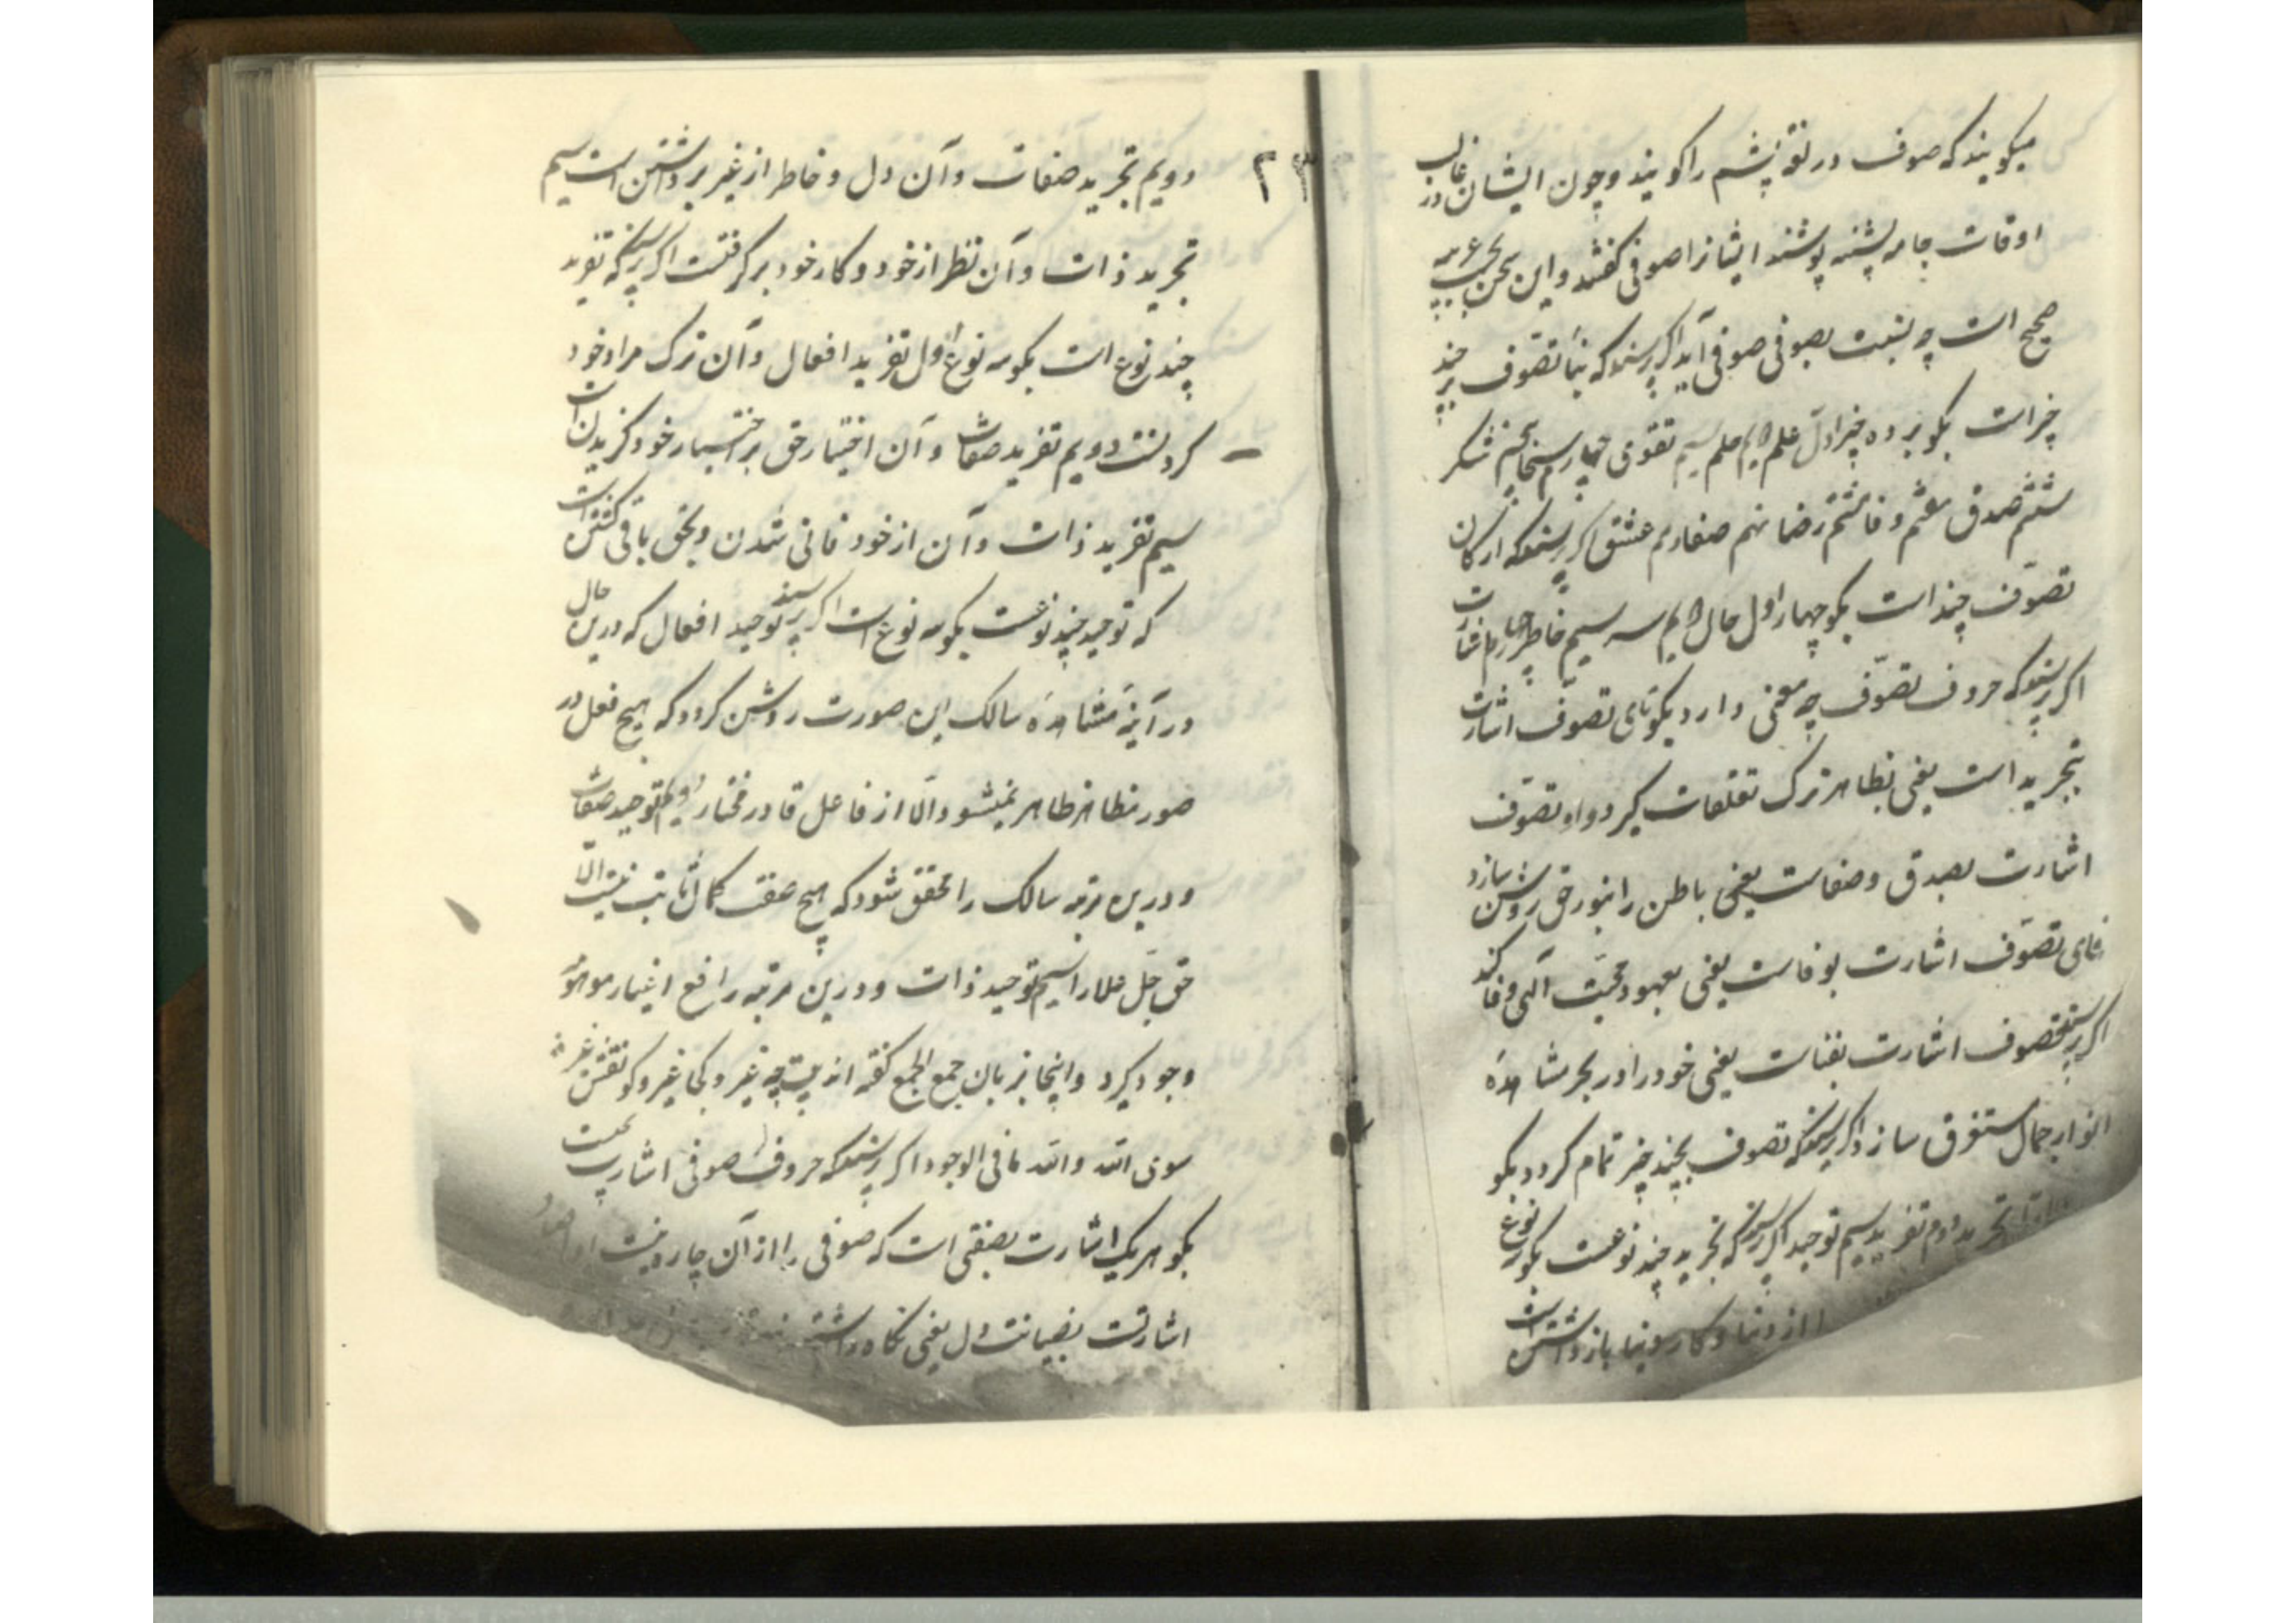 میکویند که صوف در لغة پشم را کویند و چون ایشان در غالب
اوقات جامه پشنه پوشند ایشانرا صوفی کفتند و این سخن بحسب
صحیح است چه نسبت بصوفی صوفی آید اکر پرسند که بنا تصوف بر چند
چیز است بکو بر ده چیز اول علم دویم حلم سیم تقوی چهارم سخا پنجم شکر
ششم صدق هفتم وفا هشتم رضا نهم صفا دهم عشق اکر پرسند که ارکان
تصوّف چند است بکو چهار اول حال دویم سر سیم خاطر چهارم اشارت
اکر پرسند که حروف تصوّف چه معنی دارد بکو تای تصوّف اشارت
بتجرید است یعنی بظاهر ترک تعلقات کیرد و واو تصوّف
اشارت بصدق و صفاست یعنی باطن را بنور حق روشن سازد
فای تصوّف اشارت بوفاست یعنی بعهود محبّت آلهی وفا کند
اکر پرسند تصوف اشارت بفناست یعنی خود را در بحر مشاهدهٔ
انوار جمال مستغرق سازد اکر پرسند که تصوف بچند چیز تمام کردد بکو
تجرید دوم تفرید سیم توحید اکر پرسند که تجرید چند نوعست بکو نوع
از دنیا و کار دنیا باز داشتن است
۲۳۲
دویم تجرید صفات و آن دل و خاطر از غیر برداشتن است سیم
تجرید ذات و آن نظر از خود و کار خود بر کرفتنست اکر پرسند که تفرید
چند نوع است بکو سه نوع اول تفرید افعال و آن ترک مراد خود
کردنست دویم تفرید صفات و آن اختیار حق بر اختیار خود کزیدن است
سیم تفرید ذات و آن از خود فانی شدن و بحق باقی کشتن است
که توحید چند نوعست بکو سه نوع است اکر پرسند توحید افعال که درین حال
در آینهٔ مشاهدهٔ سالک این صورت روشن کردد که هیچ فعل در
صور مظاهر ظاهر نمیشود الّا از فاعل قادر مختار دویم توحید صفات
و درین مرتبه سالک را محقق شود که هیچ صفت کمال ثابت نیست الّا
حق جلّ علا را سیم توحید ذات و درین مرتبه رافع اغیار موهوم
وجود کیرد و اینجا بزبان جمع الجمع کفته اند بیت چه غیر و کجا غیر و کو نقش غیر
سوی الله والله ما فی الوجود اکر پرسند که حروف صوفی اشارت بچیست
بکو هر یک اشارت بصفتی است که صوفی را از آن چاره نیست
اشارتست بصیانت دل یعنی نکاه داشتن